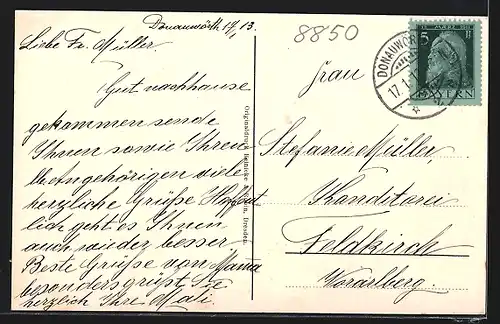 Donauwörth 17/1 13.
Liebe Fr. Müller.
Gut nachhause
gekommen sende
Ihnen sowie Ihren
Angehörigen viele
herzliche Grüße Hoffent
lich geht es Ihnen
auch wieder besser
Beste Grüße von Mama
besonders grüßt Sie
herzlich Ihre Mali.
Originaldruck Reinicke Dresden.
8850
Frau
Stefanie Müller
Konditorei
Feldkirch
Vorarlberg.
DONAUWÖR
17.1.1
5
BAYERN